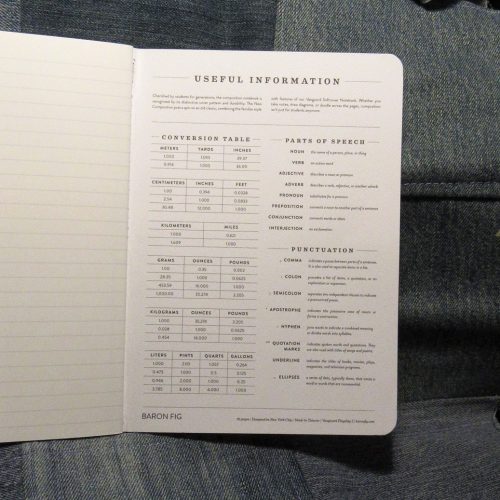 USEFUL INFORMATION
Cherished by students for generations, the composition notebook is
recognized by its distinctive cover pattern and durability. The Neo-
Composition puts spin on an old classic, combining the timeless style
with features of our Vanguard Softcover Notebook. Whether you
take notes, draw diagrams, or doodle across the pages, composition
isn't just for students anymore.
CONVERSION TABLE
METERS YARDS INCHES
1.000 39.37
0.914 1.000 36.00
CENTIMETERS INCHES FEET
1.00 0.394 0.0328
2.54 1.000 0.0833
30.48 12.000 1.000
KILOMETERS MILES
1.000 0.621
1.609 1.000
GRAMS OUNCES POUNDS
1.00 0.35 0.002
28.35 1.000 0.0625
453.59 16.000 1.000
1,000.00 2.205
KILOGRAMS OUNCES POUNDS
1.000 2.205
0.028 1.000 0.0625
0.454 16.000 1.000
LITERS PINTS QUARTS GALLONS
1.000 0.264
0.473 1.000 0.5 0.125
0.946 2.000 1.000 0.25
3.785 8.000 4.000 1.000
PARTS OF SPEECH
NOUN the name of a person, place, or thing
VERB an action word
ADJECTIVE describes a noun or pronoun
ADVERB describes a verb, adjective, or another adverb
PRONOUN substitutes for a pronoun
PREPOSITION connects a noun to another part of a sentence
CONJUNCTION connects words or ideas
INTERJECTION an exclamation
PUNCTUATION
, COMMA indicates a pause between parts of a sentence.
It is also used to separate items in a list.
: COLON precedes a list of items, a quotation, or an
explanation or expansion.
; SEMICOLON separates two independent clauses to indicate
a pronounced pause.
' APOSTROPHE indicates the possessive case of nouns or
forms a contraction.
- HYPHEN joins words to indicate a combined meaning
or divides words into syllables.
" " QUOTATION indicates spoken words and quotations. They
MARKS are also used with titles of songs and poems.
_ UNDERLINE indicates the titles of books, movies, plays,
magazines, and television programs.
... ELLIPSES a series of dots, typically three, that omits a
word or words that are unnecessary.
BARON FIG
Designed in New York City / Made in / Vanguard Flagship / baronfig.com